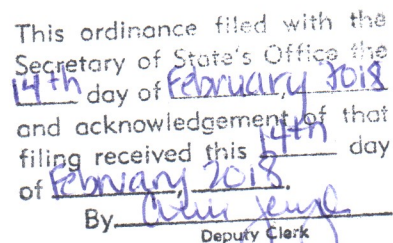 This ordinance filed with the
Secretary of State's Office the
14th day of February, 2018
and acknowledgement of that
filing received this 14th day
of February, 2018.
By
Deputy Clerk